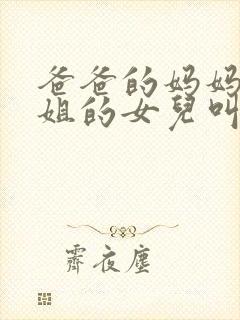 爸爸的妈妈
姐的女兒叫
霽夜塵